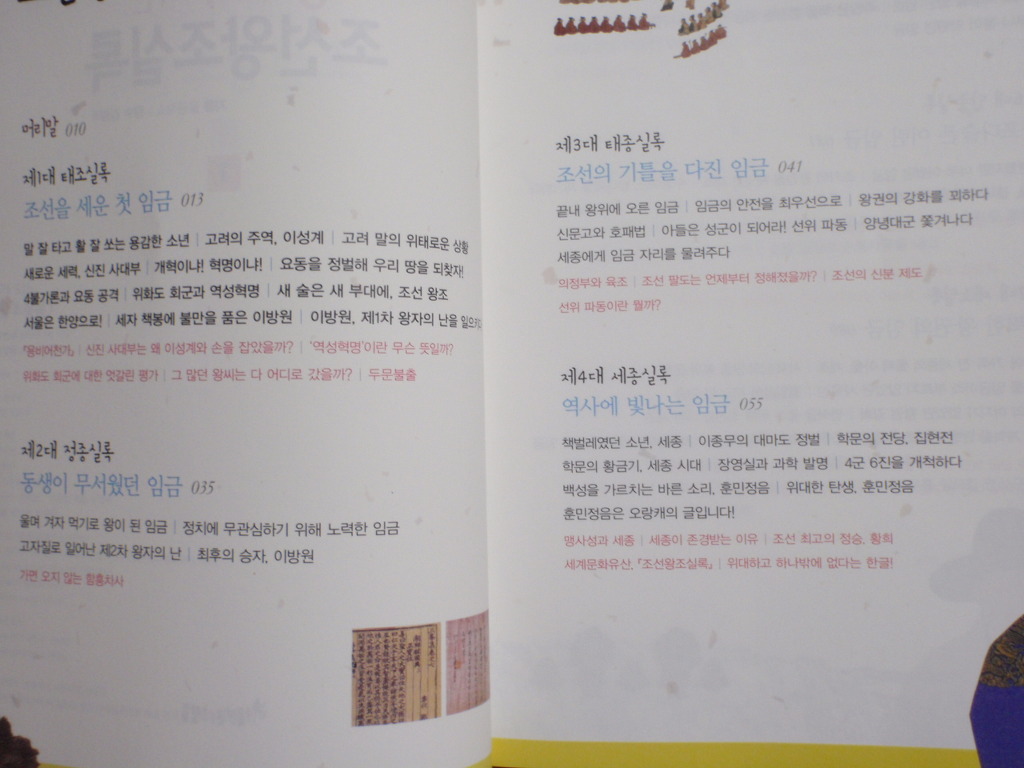 머리말 010
제1대 태조실록
조선을 세운 첫 임금 013
말 잘 타고 활 잘 쏘는 용감한 소년 | 고려의 주역, 이성계 | 고려 말의 위태로운 상황
새로운 세력, 신진 사대부 | 개혁이냐! 혁명이냐! | 요동을 정벌해 우리 땅을 되찾자!
4불가론과 요동 공격 | 위화도 회군과 역성혁명 | 새 술은 새 부대에, 조선 왕조
서울은 한양으로! | 세자 책봉에 불만을 품은 이방원 | 이방원, 제1차 왕자의 난을 일으키다
『용비어천가』 | 신진 사대부는 왜 이성계와 손을 잡았을까? | '역성혁명'이란 무슨 뜻일까?
위화도 회군에 대한 엇갈린 평가 | 그 많던 왕씨는 다 어디로 갔을까? | 두문불출
제2대 정종실록
동생이 무서웠던 임금 035
울며 겨자 먹기로 왕이 된 임금 | 정치에 무관심하기 위해 노력한 임금
고자질로 일어난 제2차 왕자의 난 | 최후의 승자, 이방원
가면 오지 않는 함흥차사
제3대 태종실록
조선의 기틀을 다진 임금 041
끝내 왕위에 오른 임금 | 임금의 안전을 최우선으로 | 왕권의 강화를 꾀하다
신문고와 호패법 | 아들은 성군이 되어라! 선위 파동 | 양녕대군 쫓겨나다
세종에게 임금 자리를 물려주다
의정부와 육조 | 조선 팔도는 언제부터 정해졌을까? | 조선의 신분 제도
선위 파동이란 뭘까?
제4대 세종실록
역사에 빛나는 임금 055
책벌레였던 소년, 세종 | 이종무의 대마도 정벌 | 학문의 전당, 집현전
학문의 황금기, 세종 시대 | 장영실과 과학 발명 | 4군 6진을 개척하다
백성을 가르치는 바른 소리, 훈민정음 | 위대한 탄생, 훈민정음
훈민정음은 오랑캐의 글입니다!
맹사성과 세종 | 세종이 존경받는 이유 | 조선 최고의 정승, 황희
세계문화유산, 『조선왕조실록』 | 위대하고 하나밖에 없다는 한글!